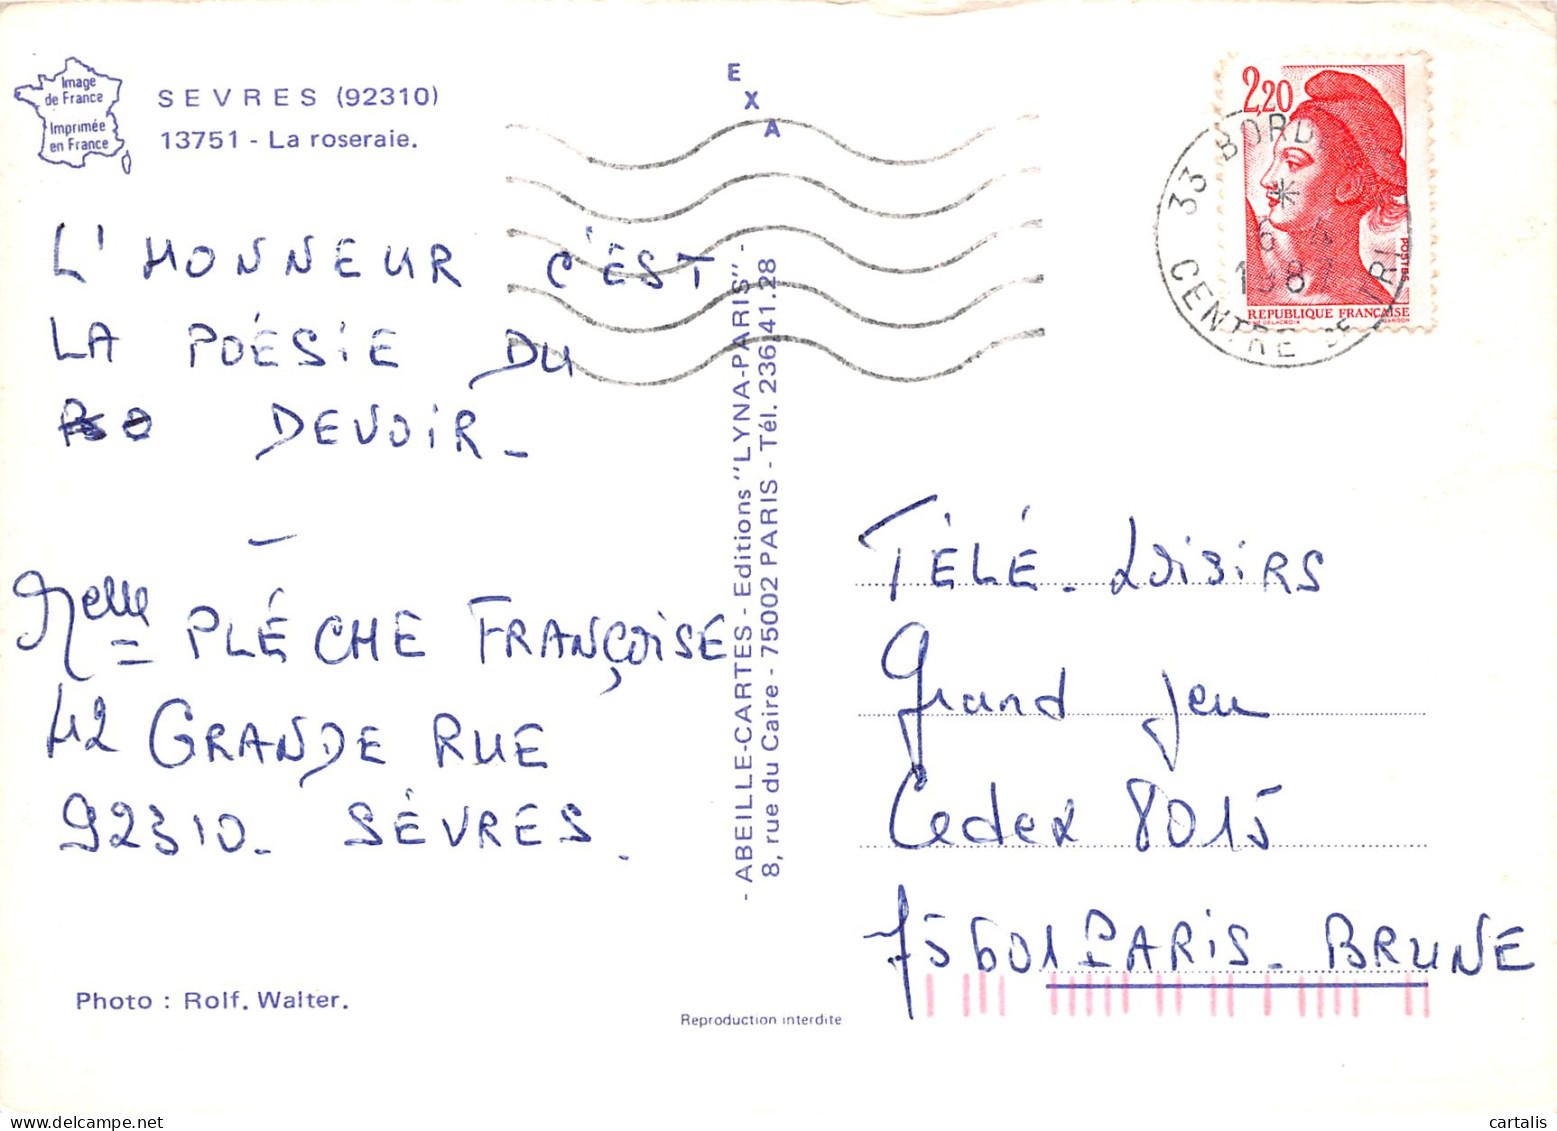 Image
de France
Imprimée
en France
SEVRES (92310)
13751 - La roseraie.
EXA
L'HONNEUR C'EST
LA POÉSIE DU
DEVOIR_
Melle PLÉCHE FRANÇOISE
42 GRANDE RUE
92310_ SÉVRES.
Photo : Rolf. Walter.
- ABEILLE-CARTES - Editions "LYNA-PARIS" -
8, rue du Caire - 75002 PARIS - Tél. 236.41.28
Reproduction interdite
2,20
POSTES
REPUBLIQUE FRANÇAISE
33 BORD
1987
CENTRE DE TRI
TÉLÉ. Loisirs
Grand Jeu
Cedex 8015
75601 PARIS_ BRUNE
cartalis